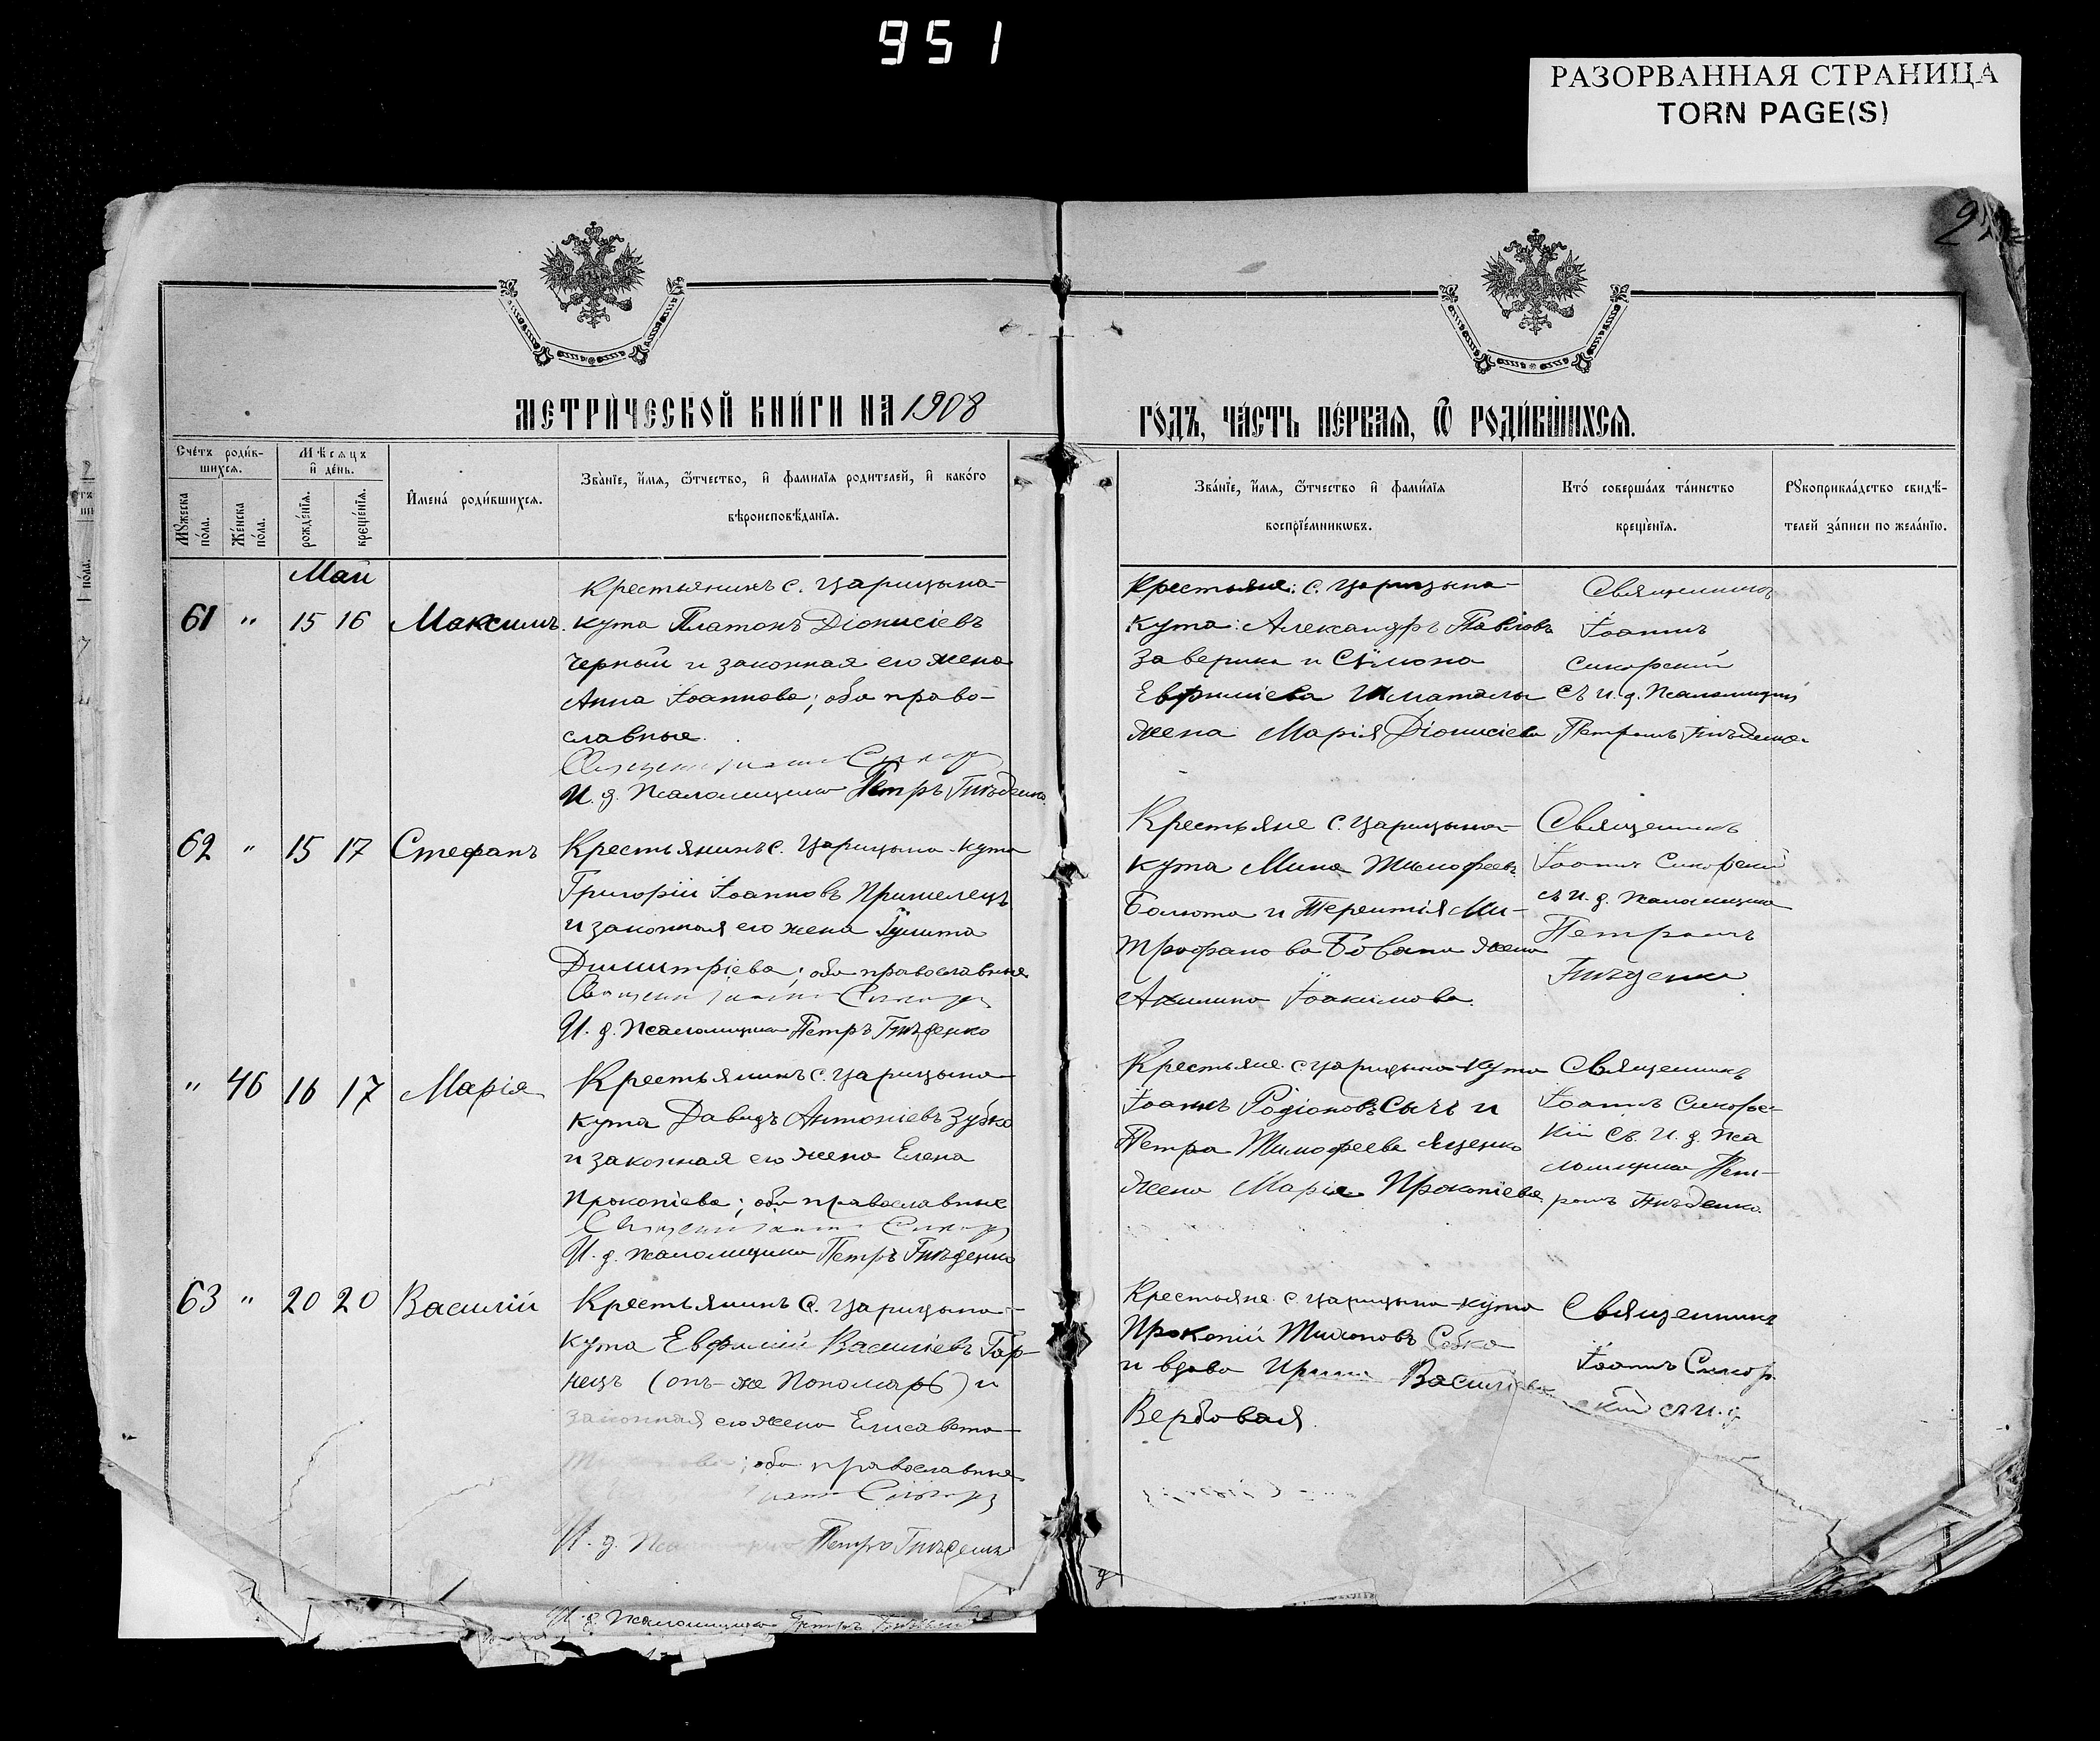 951
РАЗОРВАННАЯ СТРАНИЦА
TORN PAGE(S)
МЕТРИ́ЧЕСКОЙ КНИ́ГИ НА 1908
ГО́ДЪ, ЧА́СТЬ ПЕ́РВАѦ, Ѿ РОДИ́ВШИХСѦ.
Сче́тъ роди́в-
шихсѧ.
Мꙋжеска по́ла.
Же́нска по́ла.
Мѣсѧцъ
и҆ де́нь.
рожде́нїѧ.
креще́нїѧ.
И҆мена̀ роди́вшихсѧ.
Зва́нїе, и҆́мѧ, ѻ҆́тчество, и҆ фами́лїѧ родителей, и҆ како́го
вѣроисповѣ́данїѧ.
Зва́нїе, и҆́мѧ, ѻ҆́тчество и҆ фами́лїѧ
воспрїе́мникѡвъ.
Кто̀ соверша́лъ та́инство
креще́нїѧ.
Рꙋкоприкла́дство свидѣ́-
телей за́писи по жела́нїю.
Май
61 " 15 16 Максимъ.
Крестьянинъ с. Царицына-
кута Платонъ Діонисіевъ
Черный и законная его жена
Анна Іоаннова; оба право-
славные.
И. д. Псаломщика Петръ Гнѣденко
Крестьяне: с. Царицына-
кута: Александръ Павловъ
Заверика и Сѵмона
Евфиміева Шматалы
жена Марія Діонисіева
Священникъ
Іоаннъ
Сикорскій
съ и. д. Псаломщика
Петромъ Гнѣденко
62 " 15 17 Стефанъ
Крестьянинъ с. Царицына-кута
Григорій Іоанновъ Пришелецъ
и законная его жена Іулита
Димитріева; оба православные
И. д. Псаломщика Петръ Гнѣденко
Крестьяне с. Царицына-
кута Мина Тимофеевъ
и Терентія Ми-
трофанова Бована жена
Акилина Іоакимова.
Священникъ
Іоаннъ Сикорскій
съ И. д. Псаломщика
Петромъ
Гнѣденко
" 46 16 17 Марія
Крестьянинъ с. Царицына-
кута Давидъ Антоніевъ Зубко
и законная его жена Елена
Прокопіева; оба православные
И. д. Псаломщика Петръ Гнѣденко
Крестьяне с. Царицына-кута
Іоаннъ Родіоновъ Сычъ и
Петра Тимофеева Яценко
жена Марія Прокопіева
Священникъ
Іоаннъ Сикорс-
кій съ И. д. Пса
ломщика Пет-
ромъ Гнѣденко.
63 " 20 20 Василій
Крестьянинъ с. Царицына-
кута Евфимій Василіевъ Гор-
нецъ (онъ-же Пономарь) и
законная его жена Елисавета
; оба православные
И. д. Петръ Гнѣденко
Крестьяне с. Царицына-кута
Прокопій Собко
и вдова Ирина Василіева
Вербовая.
Священникъ
Іоаннъ Сикор
скій съ И. д.
И. д. Псаломщика Петръ